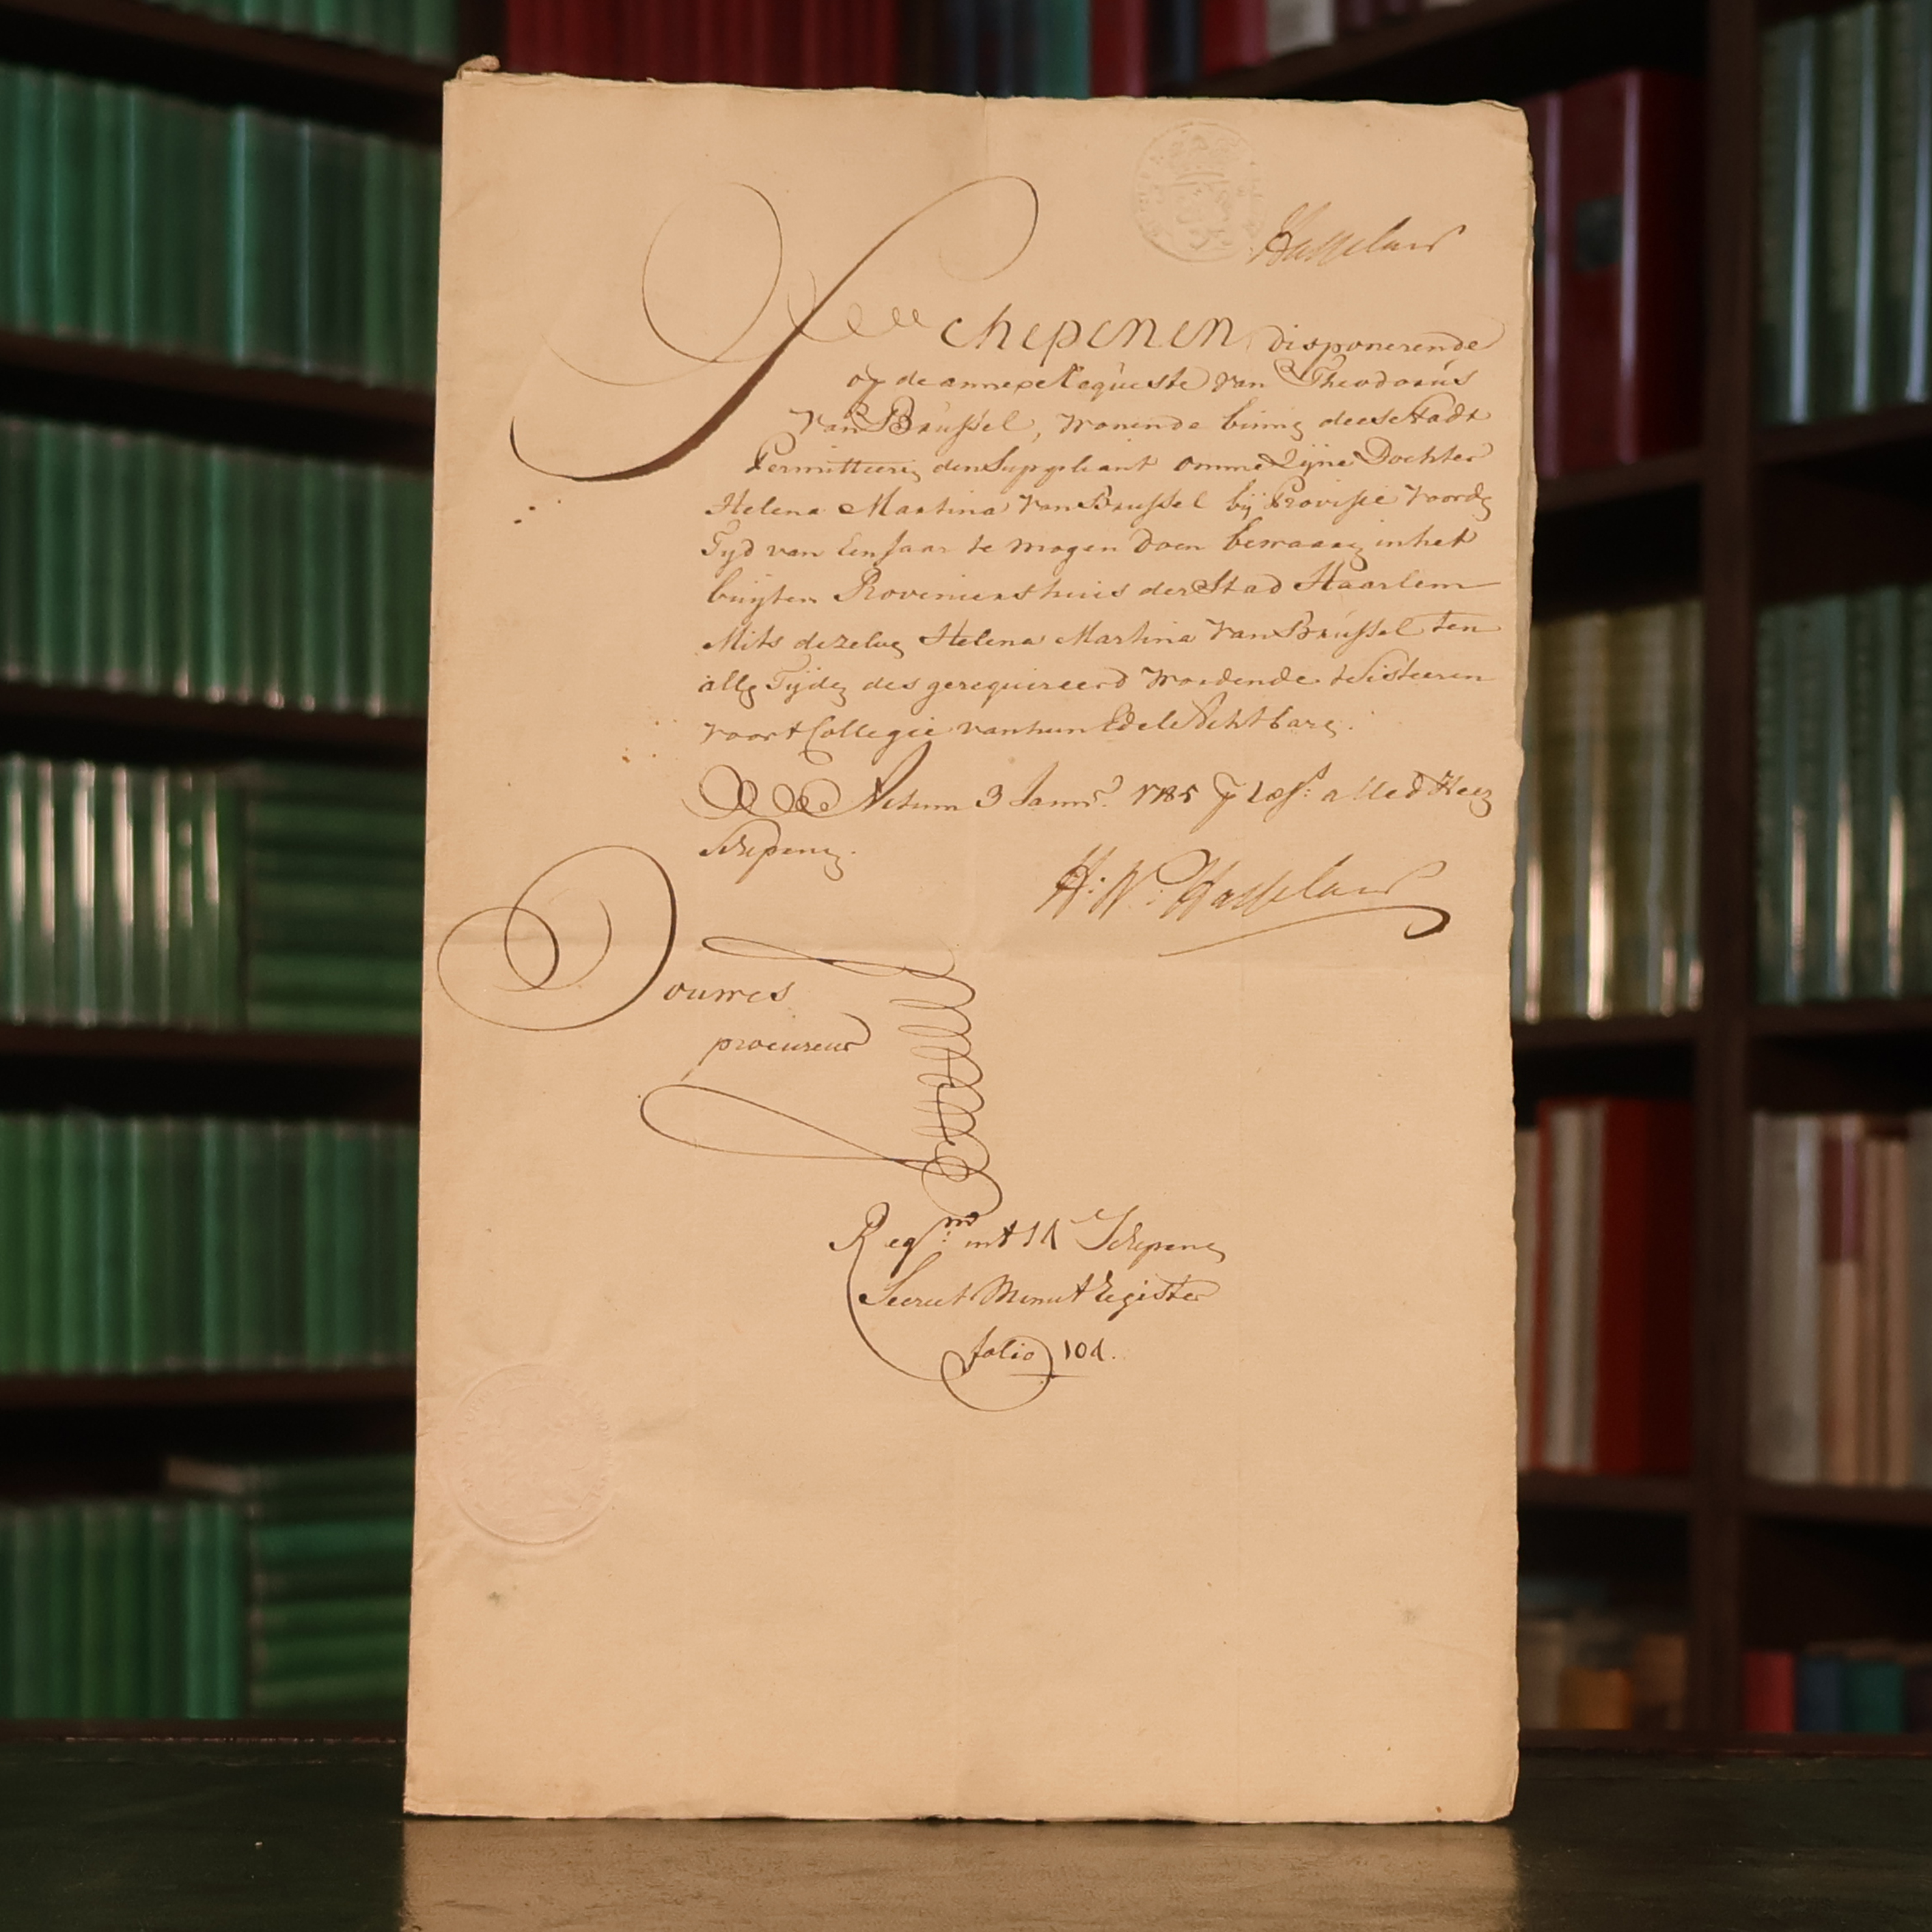 Hasselaer
Schepenen disponerende
op de annexe Requeste van Theodorus
van Brussel, wonende binng deese Stadt
Permitteerg den Suppliant omme Zijne Dochter
Helena Martina van Brussel bij Provisie voor dg
Tijd van Een Jaar te mogen doen bewaarg in het
buijten Proveniershuis der Stad Haarlem
Mits dezelvg Helena Martina van Brussel ten
allg Tijdg des gerequireerd wordende te Sisteeren
voor t Collegie van hun Edele Achtbarg.
Actum 3 Janur. 1785 alle d Heerg
Schepeng.
H: N: Hasselaer
Douwes
procureur
Regm. int Schepeng
Secreet Minut Register
folio 101.